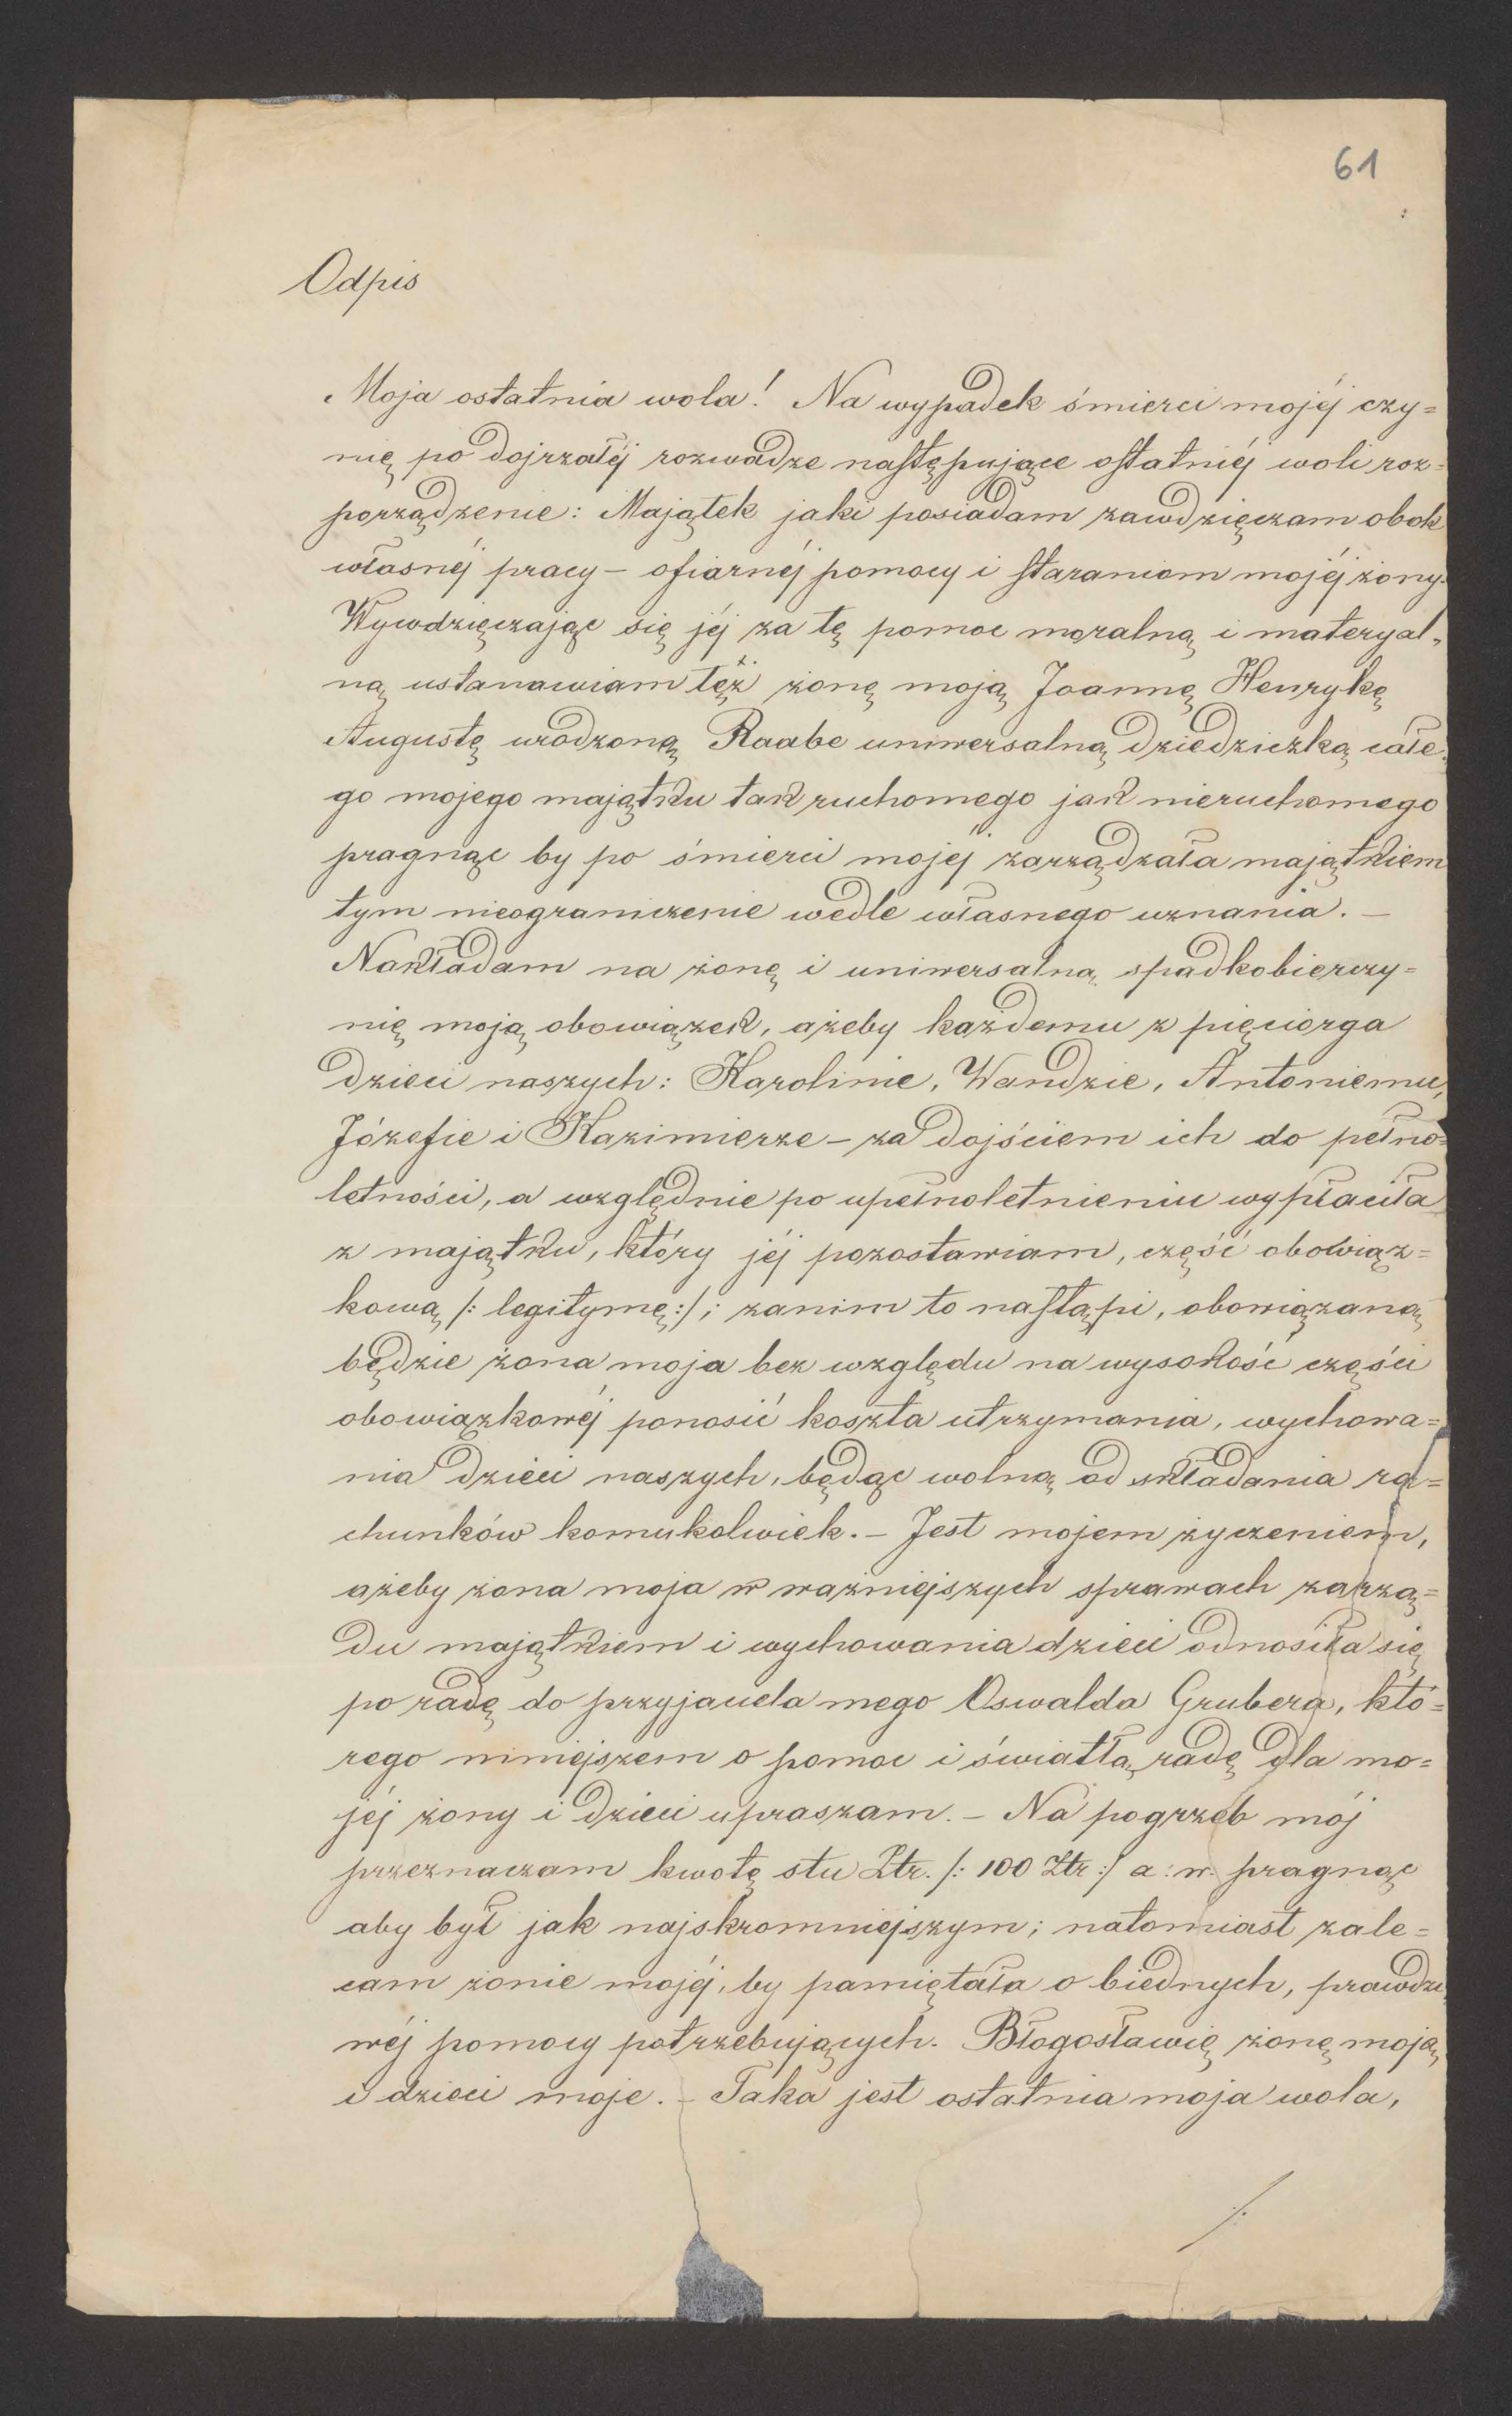 61
Odpis
Moja ostatnia wola! Na wypadek śmierci mojéj czy=
nię po dojrzałéj rozwadze następujące ostatniéj woli roz=
porządzenie: Majątek jaki posiadam zawdzięczam obok
własnéj pracy – ofiarnéj pomocy i staraniom mojéj żony.
Wywdzięczając się jéj za tę pomoc moralną i materyal=
ną ustanawiam tęż żonę moją Joannę Henrykę
Augustę urodzoną Raabe uniwersalną dziedziczką całe=
go mojego majątku tak ruchomego jak nieruchomego
pragnąc by po śmierci mojéj zarządzała majątkiem
tym nieograniczenie wedle własnego uznania. –
Nakładam na żonę i uniwersalną spadkobierczy=
nię moją obowiązek, ażeby każdemu z pięciorga
dzieci naszych: Karolinie, Wandzie, Antoniemu,
Józefie i Kazimierze – za dojściem ich do pełno=
letności, a względnie po upełnoletnieniu wypłaciła
z majątku, który jéj pozostawiam, część obowiąz=
kową /: legitymę :/; zanim to nastąpi, obowiązaną
będzie żona moja bez względu na wysokość części
obowiązkowéj ponosić koszta utrzymania, wychowa=
nia dzieci naszych, będąc wolną od składania ra=
chunków komukolwiek. – Jest mojem życzeniem,
ażeby żona moja w ważniejszych sprawach zarzą=
du majątkiem i wychowania dzieci odnosiła się
po radę do przyjaciela mego Oswalda Grubera, któ=
rego niniejszem o pomoc i światłą radę dla mo=
jéj żony i dzieci upraszam. – Na pogrzeb mój
przeznaczam kwotę stu Złr. /: 100 Złr :/ a: w. pragnąc
aby był jak najskromniejszym; natomiast zale=
cam żonie mojéj, by pamiętała o biednych, prawdzi=
wéj pomocy potrzebujących. Błogosławię żonę moją
i dzieci moje. – Taka jest ostatnia moja wola,
./.